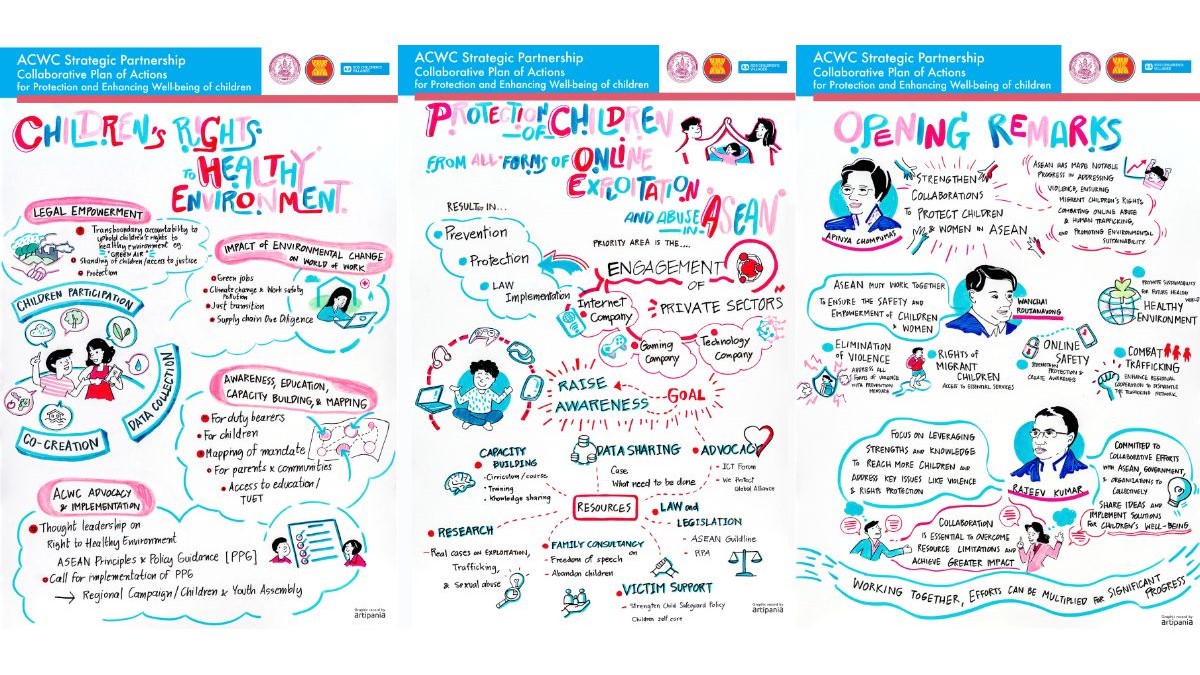 ACWC Strategic Partnership
Collaborative Plan of Actions
for Protection and Enhancing Well-being of children
SOS CHILDREN'S
VILLAGES
CHILDREN'S RIGHTS
TO HEALTHY
ENVIRONMENT
LEGAL EMPOWERMENT
Transboundary accountability to
uphold children's rights to
healthy environment eg.
"GREEN AIR"
Standing of children/access to justice
Protection
IMPACT OF ENVIRONMENTAL CHANGE
ON WORLD OF WORK
Green jobs
Climate change & Work safety
Pollution
Just transition
Supply chain Due Diligence
CHILDREN PARTICIPATION
DATA COLLECTION
CO-CREATION
AWARENESS, EDUCATION,
CAPACITY BUILDING, & MAPPING
For duty bearers
For children
Mapping of mandate
For parents & communities
Access to education/
TVET
ACWC ADVOCACY
& IMPLEMENTATION
Thought leadership on
Right to Healthy Environment
ASEAN Principles & Policy Guidance [PPG]
Call for implementation of PPG
→ Regional Campaign/Children & Youth Assembly
Graphic record by
artipania
ACWC Strategic Partnership
Collaborative Plan of Actions
for Protection and Enhancing Well-being of children
SOS CHILDREN'S
VILLAGES
PROTECTION
OF CHILDREN
FROM ALL FORMS OF ONLINE
EXPLOITATION
AND ABUSE IN ASEAN
RESULTED IN...
Prevention
Protection
LAW
Implementation
PRIORITY AREA IS THE....
ENGAGEMENT
OF
PRIVATE SECTORS
Internet
Company
Gaming
Company
Technology
Company
RAISE
AWARENESS
GOAL
CAPACITY
BUILDING
- Cirriculum/course
- Training
- Knowledge sharing
DATA SHARING
Case
What need to be done
ADVOCACY
- ICT Forum
- We Protect
Global Alliance
RESOURCES
RESEARCH
- Real cases on EXPLOITATION,
Trafficking,
& Sexual abuse
FAMILY CONSULTANCY
- Freedom of speech on
- Abandon children
LAW and
LEGISLATION
- ASEAN Guildline
- RPA
VICTIM SUPPORT
- Strengthen Child Safeguard Policy
Children self care
Graphic record by
artipania
ACWC Strategic Partnership
Collaborative Plan of Actions
for Protection and Enhancing Well-being of children
SOS CHILDREN'S
VILLAGES
OPENING REMARKS
APINYA CHOMPUMAS
STRENGTHEN
COLLABORATIONS
TO PROTECT CHILDREN
& WOMEN IN ASEAN
ASEAN HAS MADE NOTABLE
PROGRESS IN ADDRESSING
VIOLENCE, ENSURING
MIGRANT CHILDREN'S RIGHTS
COMBATING ONLINE ABUSE
& HUMAN TRAFFICKING,
AND PROMOTING ENVIRONMENTAL
SUSTAINABILITY.
ASEAN MUST WORK TOGETHER
TO ENSURE THE SAFETY AND
EMPOWERMENT OF CHILDREN
& WOMEN
WANCHAI
ROUJANAVONG
PROMOTE SUSTAINABILITY
FOR FUTURE HEALTHY
WORLD
HEALTHY
ENVIRONMENT
ELIMINATION
OF VIOLENCE
ADDRESS ALL
FORMS OF VIOLENCE
WITH PREVENTION
MEASURE
RIGHTS OF
MIGRANT
CHILDREN
ACCESS TO ESSENTIAL SERVICES
ONLINE
SAFETY
STRENGTHEN
PROTECTION &
CREATE AWARENESS
COMBAT
TRAFFICKING
ENHANCE REGIONAL
COOPERATION TO DISMANTLE
THE TRAFFICKING NETWORK.
FOCUS ON LEVERAGING
STRENGTHS AND KNOWLEDGE
TO REACH MORE CHILDREN AND
ADDRESS KEY ISSUES LIKE VIOLENCE
& RIGHTS PROTECTION
RAJEEV KUMAR
COMMITTED TO
COLLABORATIVE EFFORTS
WITH ASEAN, GOVERNMENT,
& ORGANIZATIONS TO
COLLECTIVELY
SHARE IDEAS AND
IMPLEMENT SOLUTIONS
FOR CHILDREN'S WELL-BEING
COLLABORATION
IS ESSENTIAL TO OVERCOME
RESOURCE LIMITATIONS AND
ACHIEVE GREATER IMPACT
WORKING TOGETHER, EFFORTS CAN BE MULTIPLIED FOR SIGNIFICANT
PROGRESS
Graphic record by
artipania